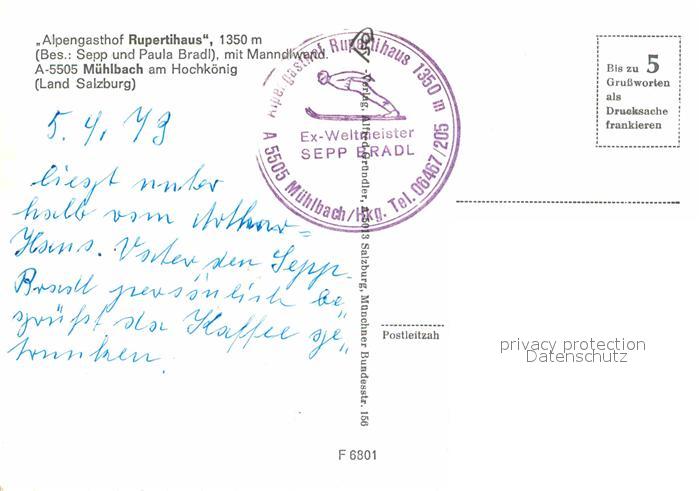 „Alpengasthof Rupertihaus“, 1350 m
(Bes.: Sepp und Paula Bradl), mit Manndlwand.
A-5505 Mühlbach am Hochkönig
(Land Salzburg)
5. 4. 79
liegt unter
halb vom Arthur=
Haus. Vater den Sepp
Bradl persönlich be„
grüßt da Kaffee ge„
trunken.
Alpengasthof Rupertihaus 1350 m
Ex-Weltmeister
SEPP BRADL
A 5505 Mühlbach/Hkg. Tel. 06467/205
Verlag, Alfred Gründler, A-5013 Salzburg, Münchner Bundesstr. 156
Bis zu 5
Grußworten
als
Drucksache
frankieren
Postleitzahl
privacy protection
Datenschutz
F 6801